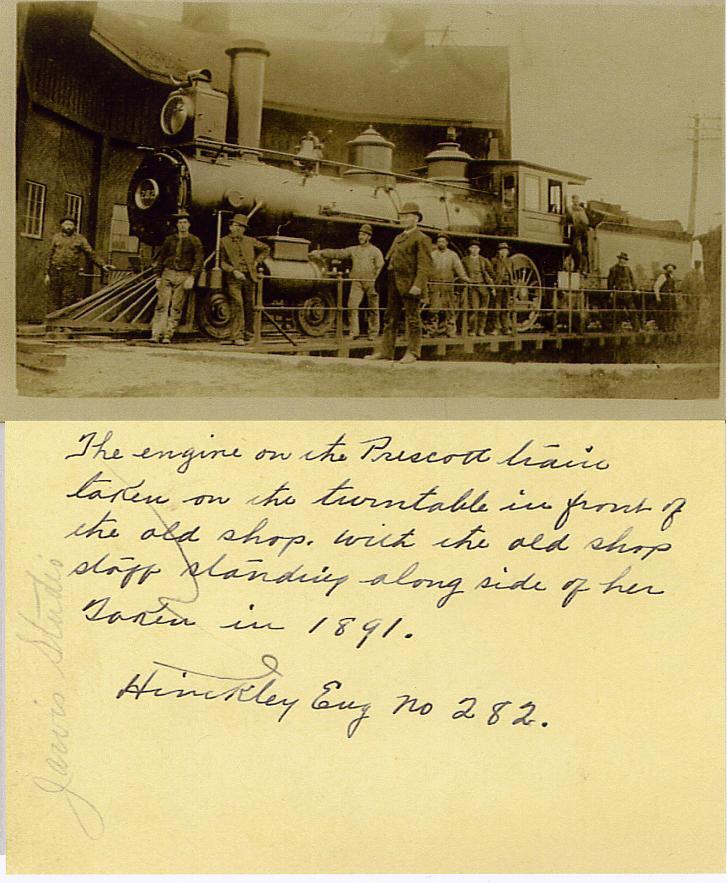 282
The engine on the Prescott train
taken on the turntable in front of
the old shop. With the old shop
staff standing along side of her
Taken in 1891.
Hinckley Eng no 282.
Jarvis Studio